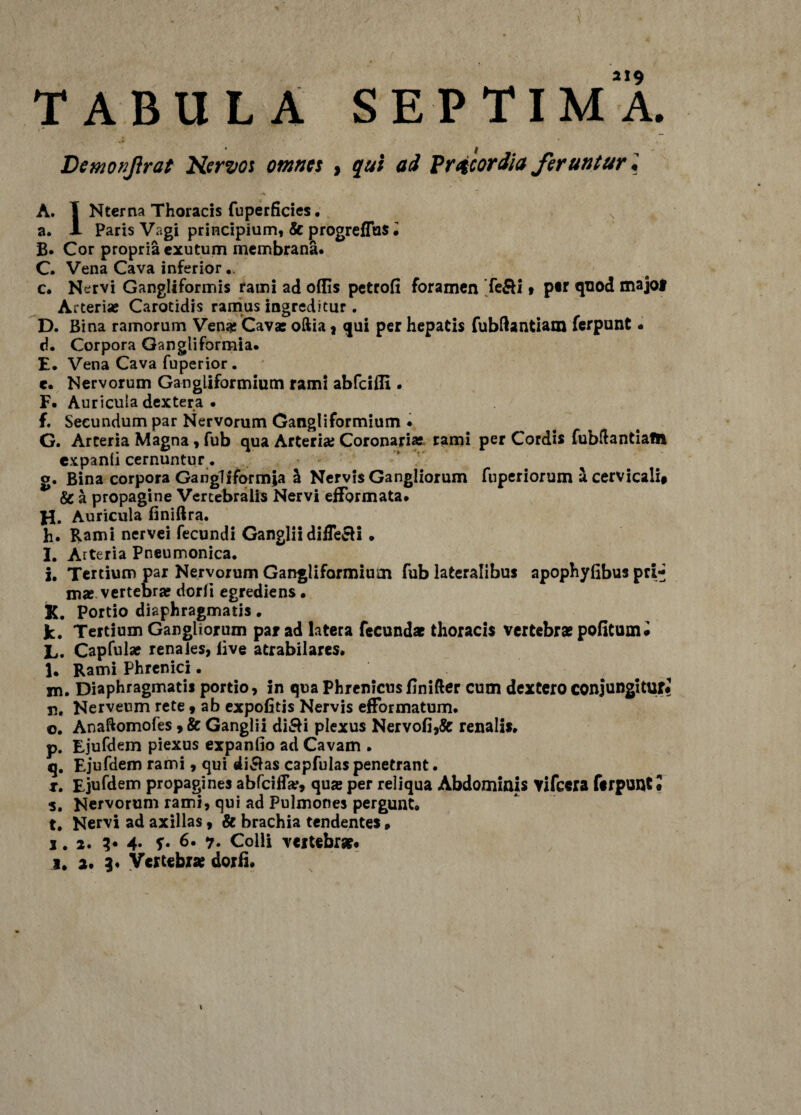 219
TABULA SEPTIMA.
Demonſtrat Nervos omnes , qui ad Præcordia feruntur.
A. INterna Thoracis ſuperficies.
a. Paris Vagi principium, & progreſſus.
B. Cor propriâ exutum membranâ.
C. Vena Cava inferior.
c. Nervi Gangliformis rami ad oſſis petroſi foramen ſecti, per quod major
Arteriæ Carotidis ramus ingreditur.
D. Bina ramorum Venæ Cavæ oſtia, qui per hepatis ſubſtantiam ſerpunt.
d. Corpora Gangliformia.
E. Vena Cava ſuperior.
e. Nervorum Gangliformium rami abſciſſi.
F. Auricula dextera.
f. Secundum par Nervorum Gangliformium.
G. Arteria Magna, ſub qua Arteriæ Coronariæ rami per Cordis ſubſtantiam
expanſi cernuntur.
g. Bina corpora Gangliformia à Nervis Gangliorum ſuperiorum à cervicali,
& à propagine Vertebralis Nervi efformata.
H. Auricula ſiniſtra.
h. Rami nervei ſecundi Ganglii diſſecti.
I. Arteria Pneumonica.
i. Tertium par Nervorum Gangliformium ſub lateralibus apophyſibus pri-
mæ vertebræ dorſi egrediens.
K. Portio diaphragmatis.
k. Tertium Gangliorum par ad latera ſecundæ thoracis vertebræ poſitum.
L. Capſulæ renales, ſive atrabilares.
l. Rami Phrenici.
m. Diaphragmatis portio, in qua Phrenicus ſiniſter cum dextero conjungitur.
n. Nerveum rete, ab expoſitis Nervis efformatum.
o. Anaſtomoſes, & Ganglii dicti plexus Nervoſi, & renalis.
p. Ejuſdem piexus expanſio ad Cavam.
q. Ejuſdem rami, qui dictas capſulas penetrant.
r. Ejuſdem propagines abſciſſæ, quæ per reliqua Abdominis viſcera ſerpunt.
s. Nervorum rami, qui ad Pulmones pergunt.
t. Nervi ad axillas, & brachia tendentes.
1. 2. 3. 4. 5. 6. 7. Colli vertebræ.
1. 2. 3. Vertebræ dorſi.